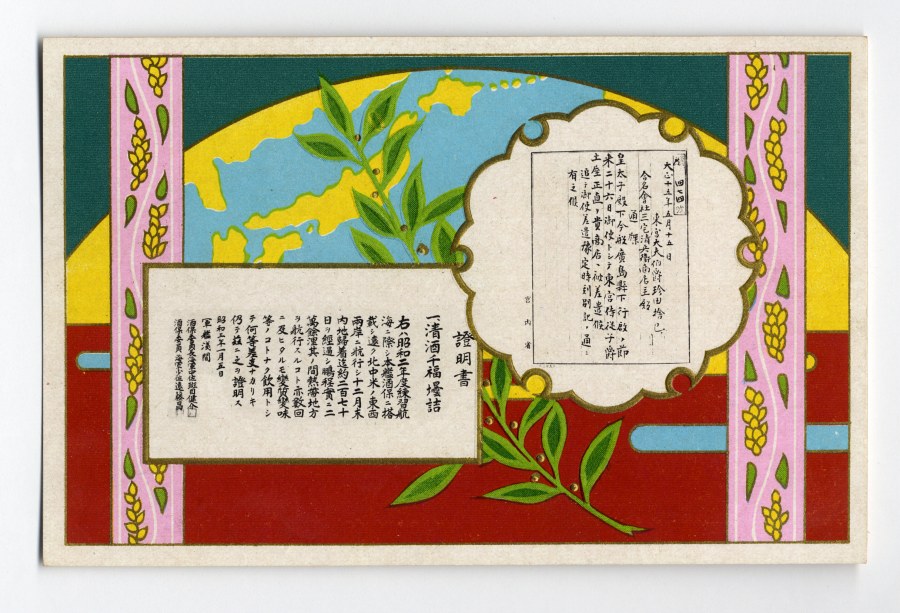 四七四
大正十五年五月十五日
東宮大夫伯爵珍田捨巳
合名會社三宅清兵衛商店主殿
通牒
皇太子殿下今般廣島縣下ヘ行啓ノ節
来二十六日御使トシテ東宮侍従子爵
土屋正直ヲ貴商店ヘ被差遣候
追テ御使差遣豫定時刻別記ノ通ニ
有之候
宮内省
證明書
一清酒千福壜詰
右ハ昭和二年度練習航
海ニ際シ本艦酒保ニ搭
載シ遠ク北中米ノ東西
兩岸ニ航行シ十二月末
内地歸着迄約二百七十
日ヲ經過シ鵬程實ニ二
萬餘浬其ノ間熱帯地方
ヲ航行スルコト亦数回
ニ及ヒタルモ變質變味
等ノコトナク飲用トシ
テ何等差支ナカリキ
仍テ茲ニ之ヲ證明ス
昭和三年一月五日
軍艦淺間
酒保委員長海軍中佐班目健介
酒保委員海軍少佐遠藤昌